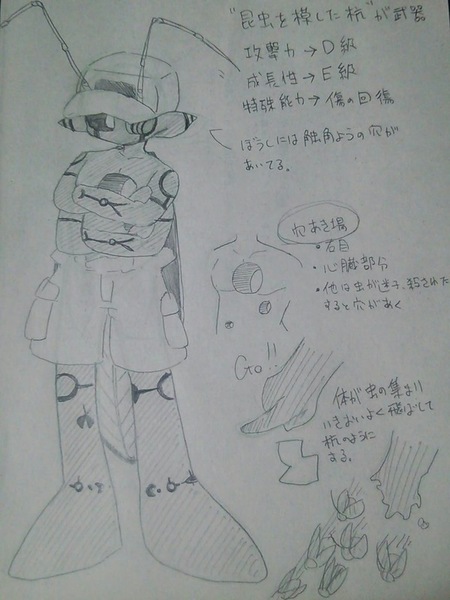 "昆虫を模した杭"が武器
攻撃力→D級
成長性→E級
特殊能力→傷の回復
ぼうしには触角ようの穴が
あいてる。
穴あき場
・右目
・心臓部分
・他は虫が迷子、殺された
すると穴があく
Go!!
体が虫の集まり
いきおいよく飛ばして
杭のように
する。